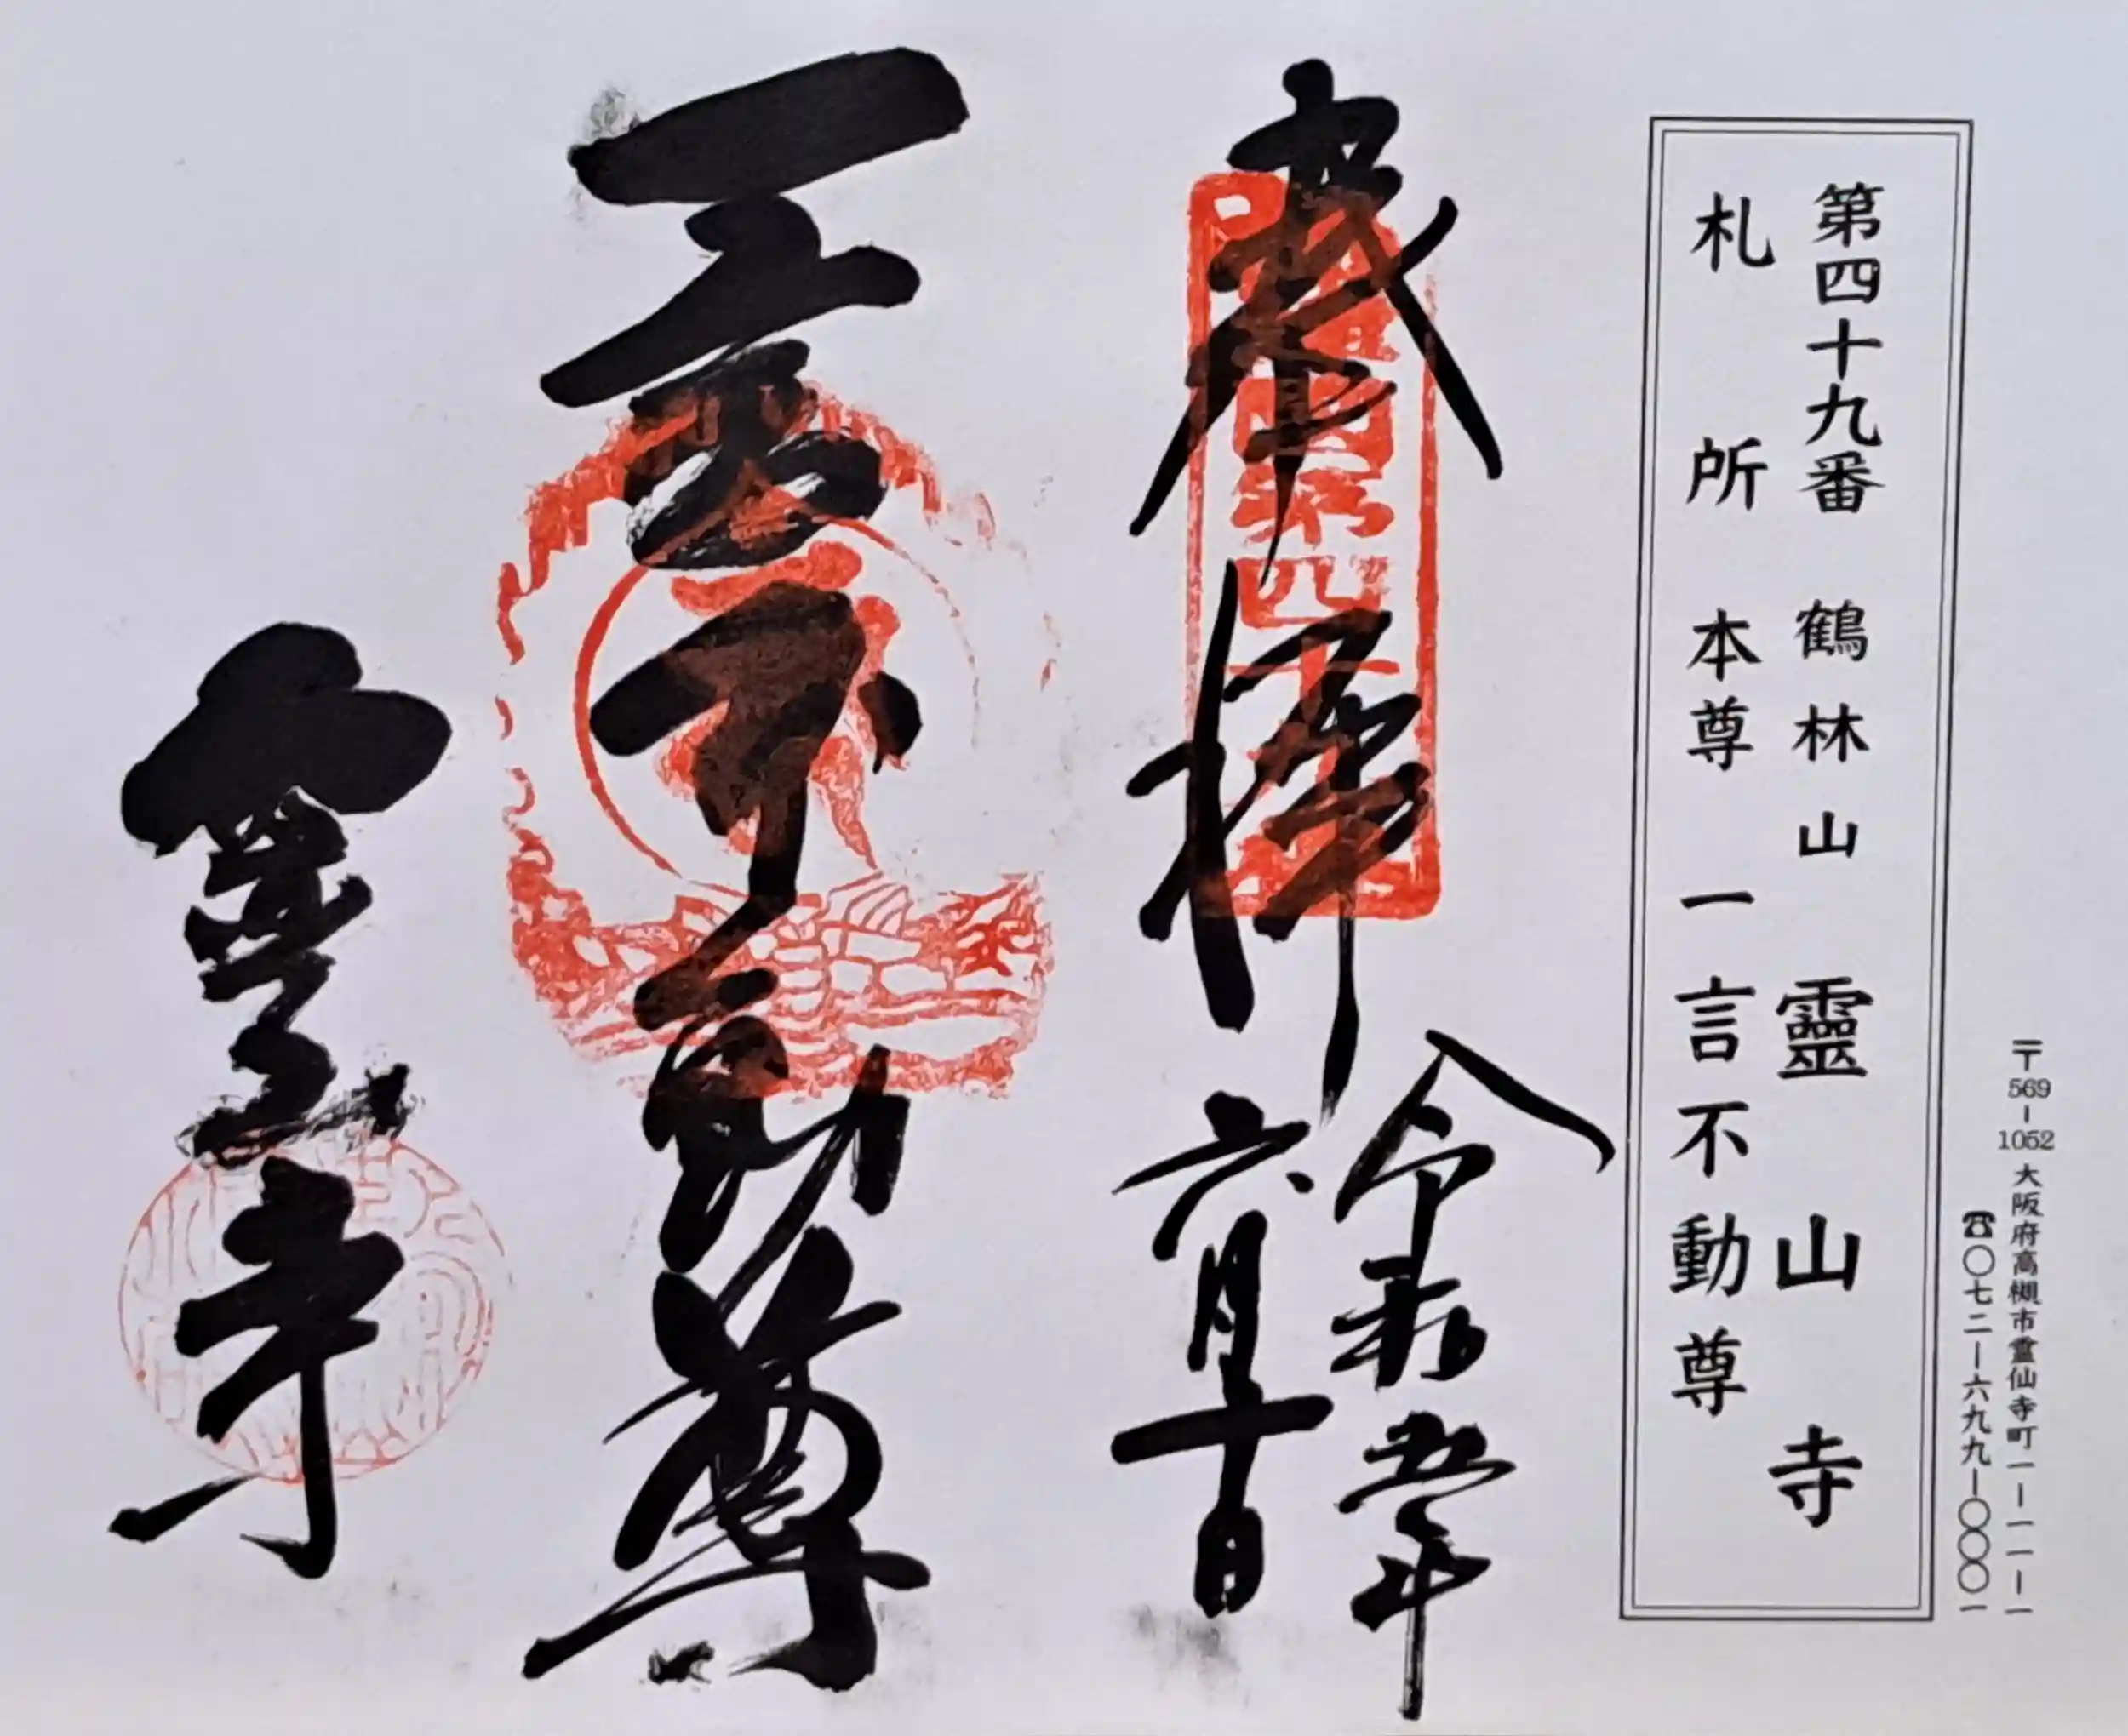 〒569-1052 大阪府高槻市霊仙寺町一-一一一-一
☎〇七二-六九九-〇〇〇一
第四十九番 鶴林山 靈山寺
札所本尊 一言不動尊
奉拝
令和五年
六月十日
一言不動尊
靈山寺